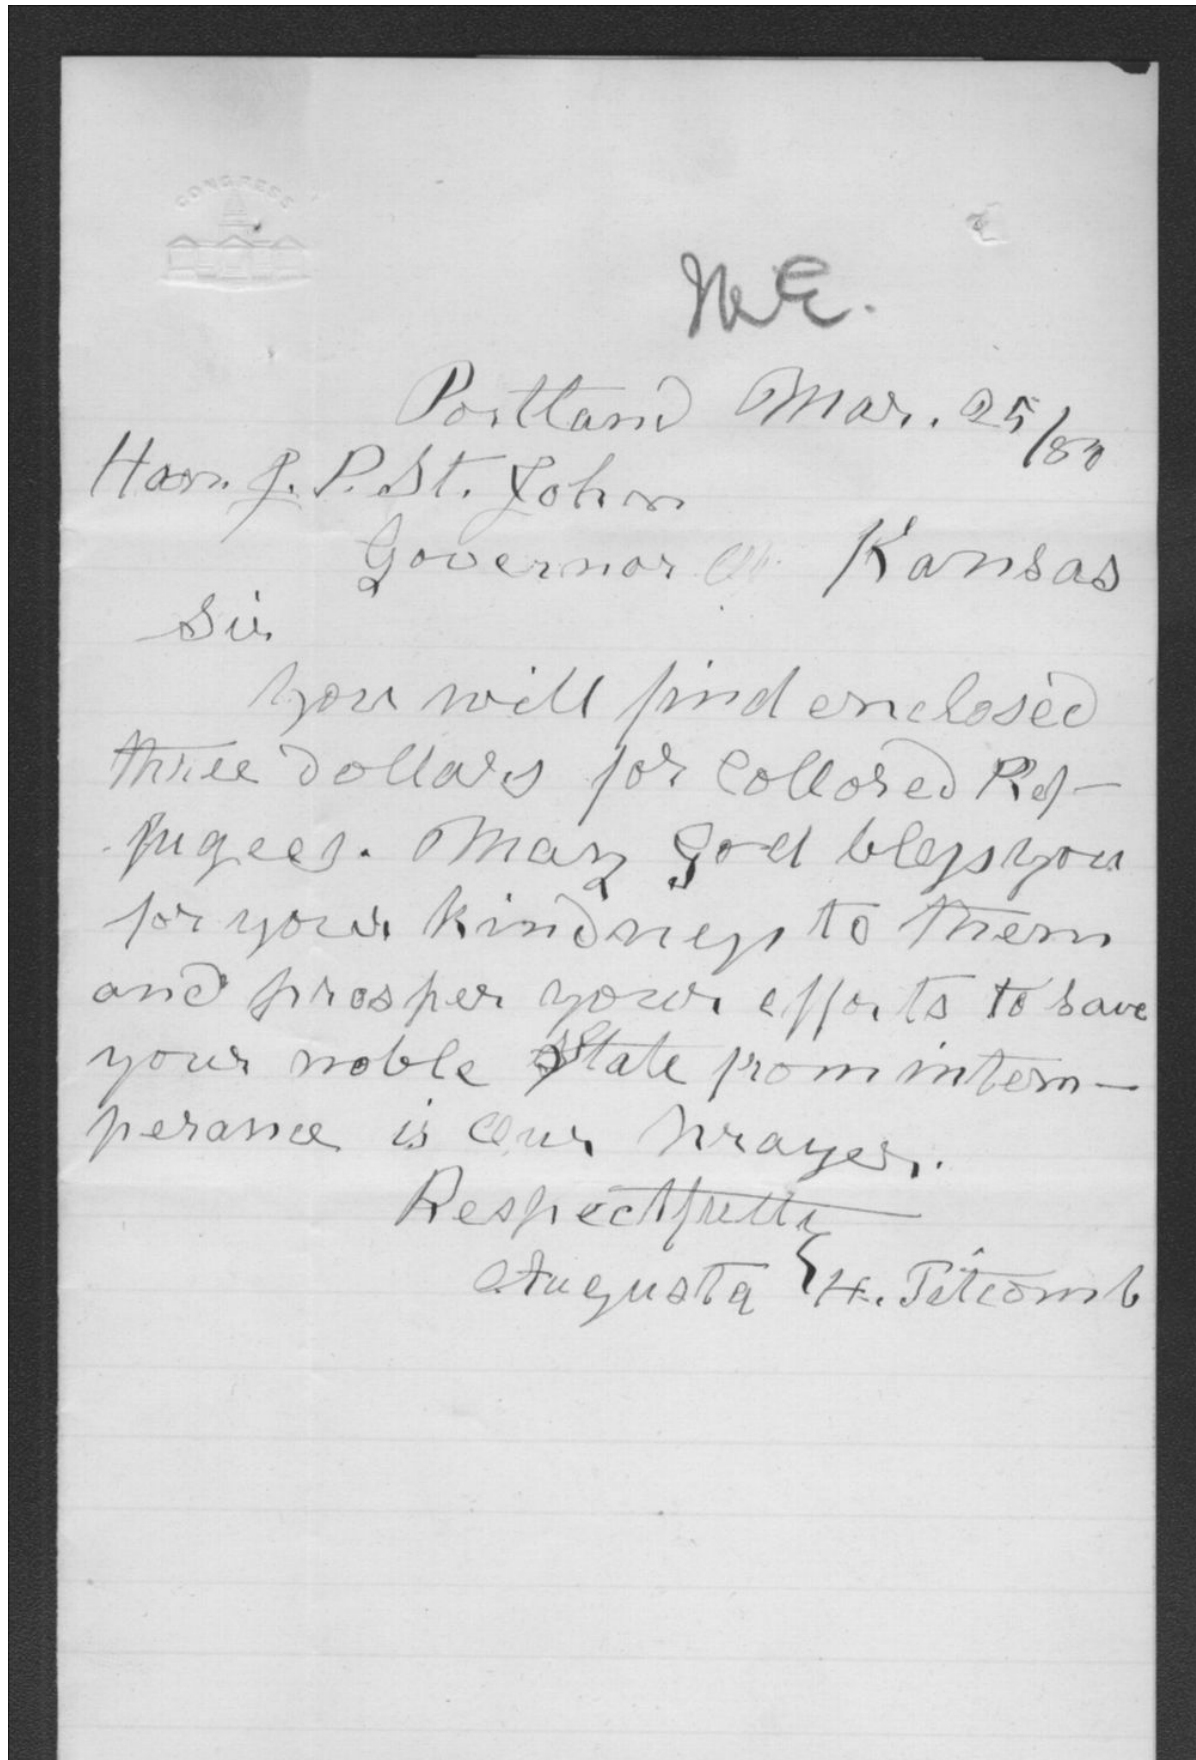 CONGRESS
Me.
Portland Mar. 25/80
Hon. J. P. St. John
Governor of Kansas
Sir
You will find enclosed
three dollars for Collored Ref-
fugees. May God bless you
for your kindness to them
and prosper your efforts to save
your noble State from intem-
perance is our prayer.
Respectfully
Augusta H. Titcomb